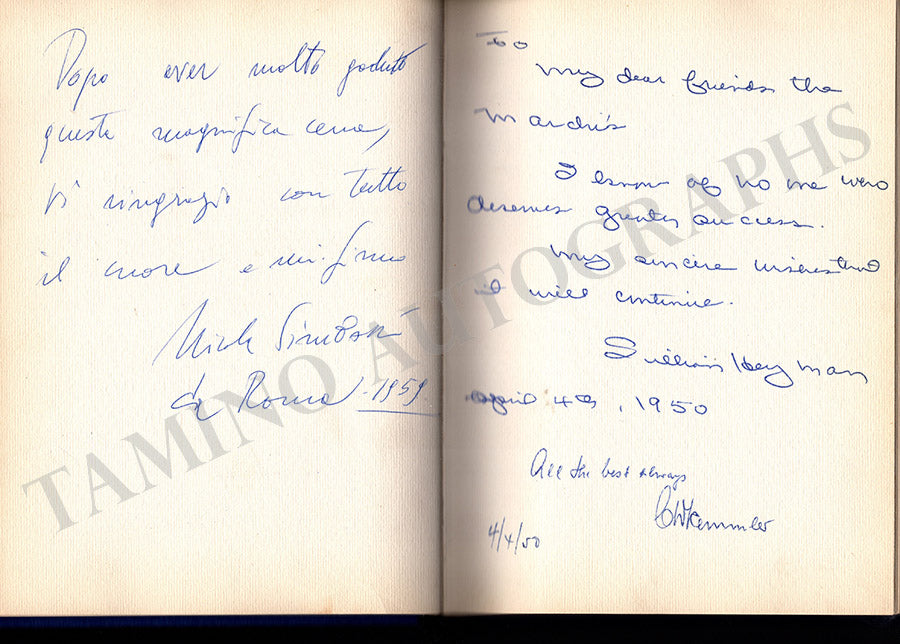 Dopo aver molto goduto
questa magnifica cena,
Vi ringrazio con tutto
il cuore e mi firmo
da Roma 1959
To
My dear friends the
I know of no one who
deserves greater success.
My sincere wishes that
it will continue.
Heyman
April 4th, 1950
All the best always
4/4/50
TAMINO AUTOGRAPHS